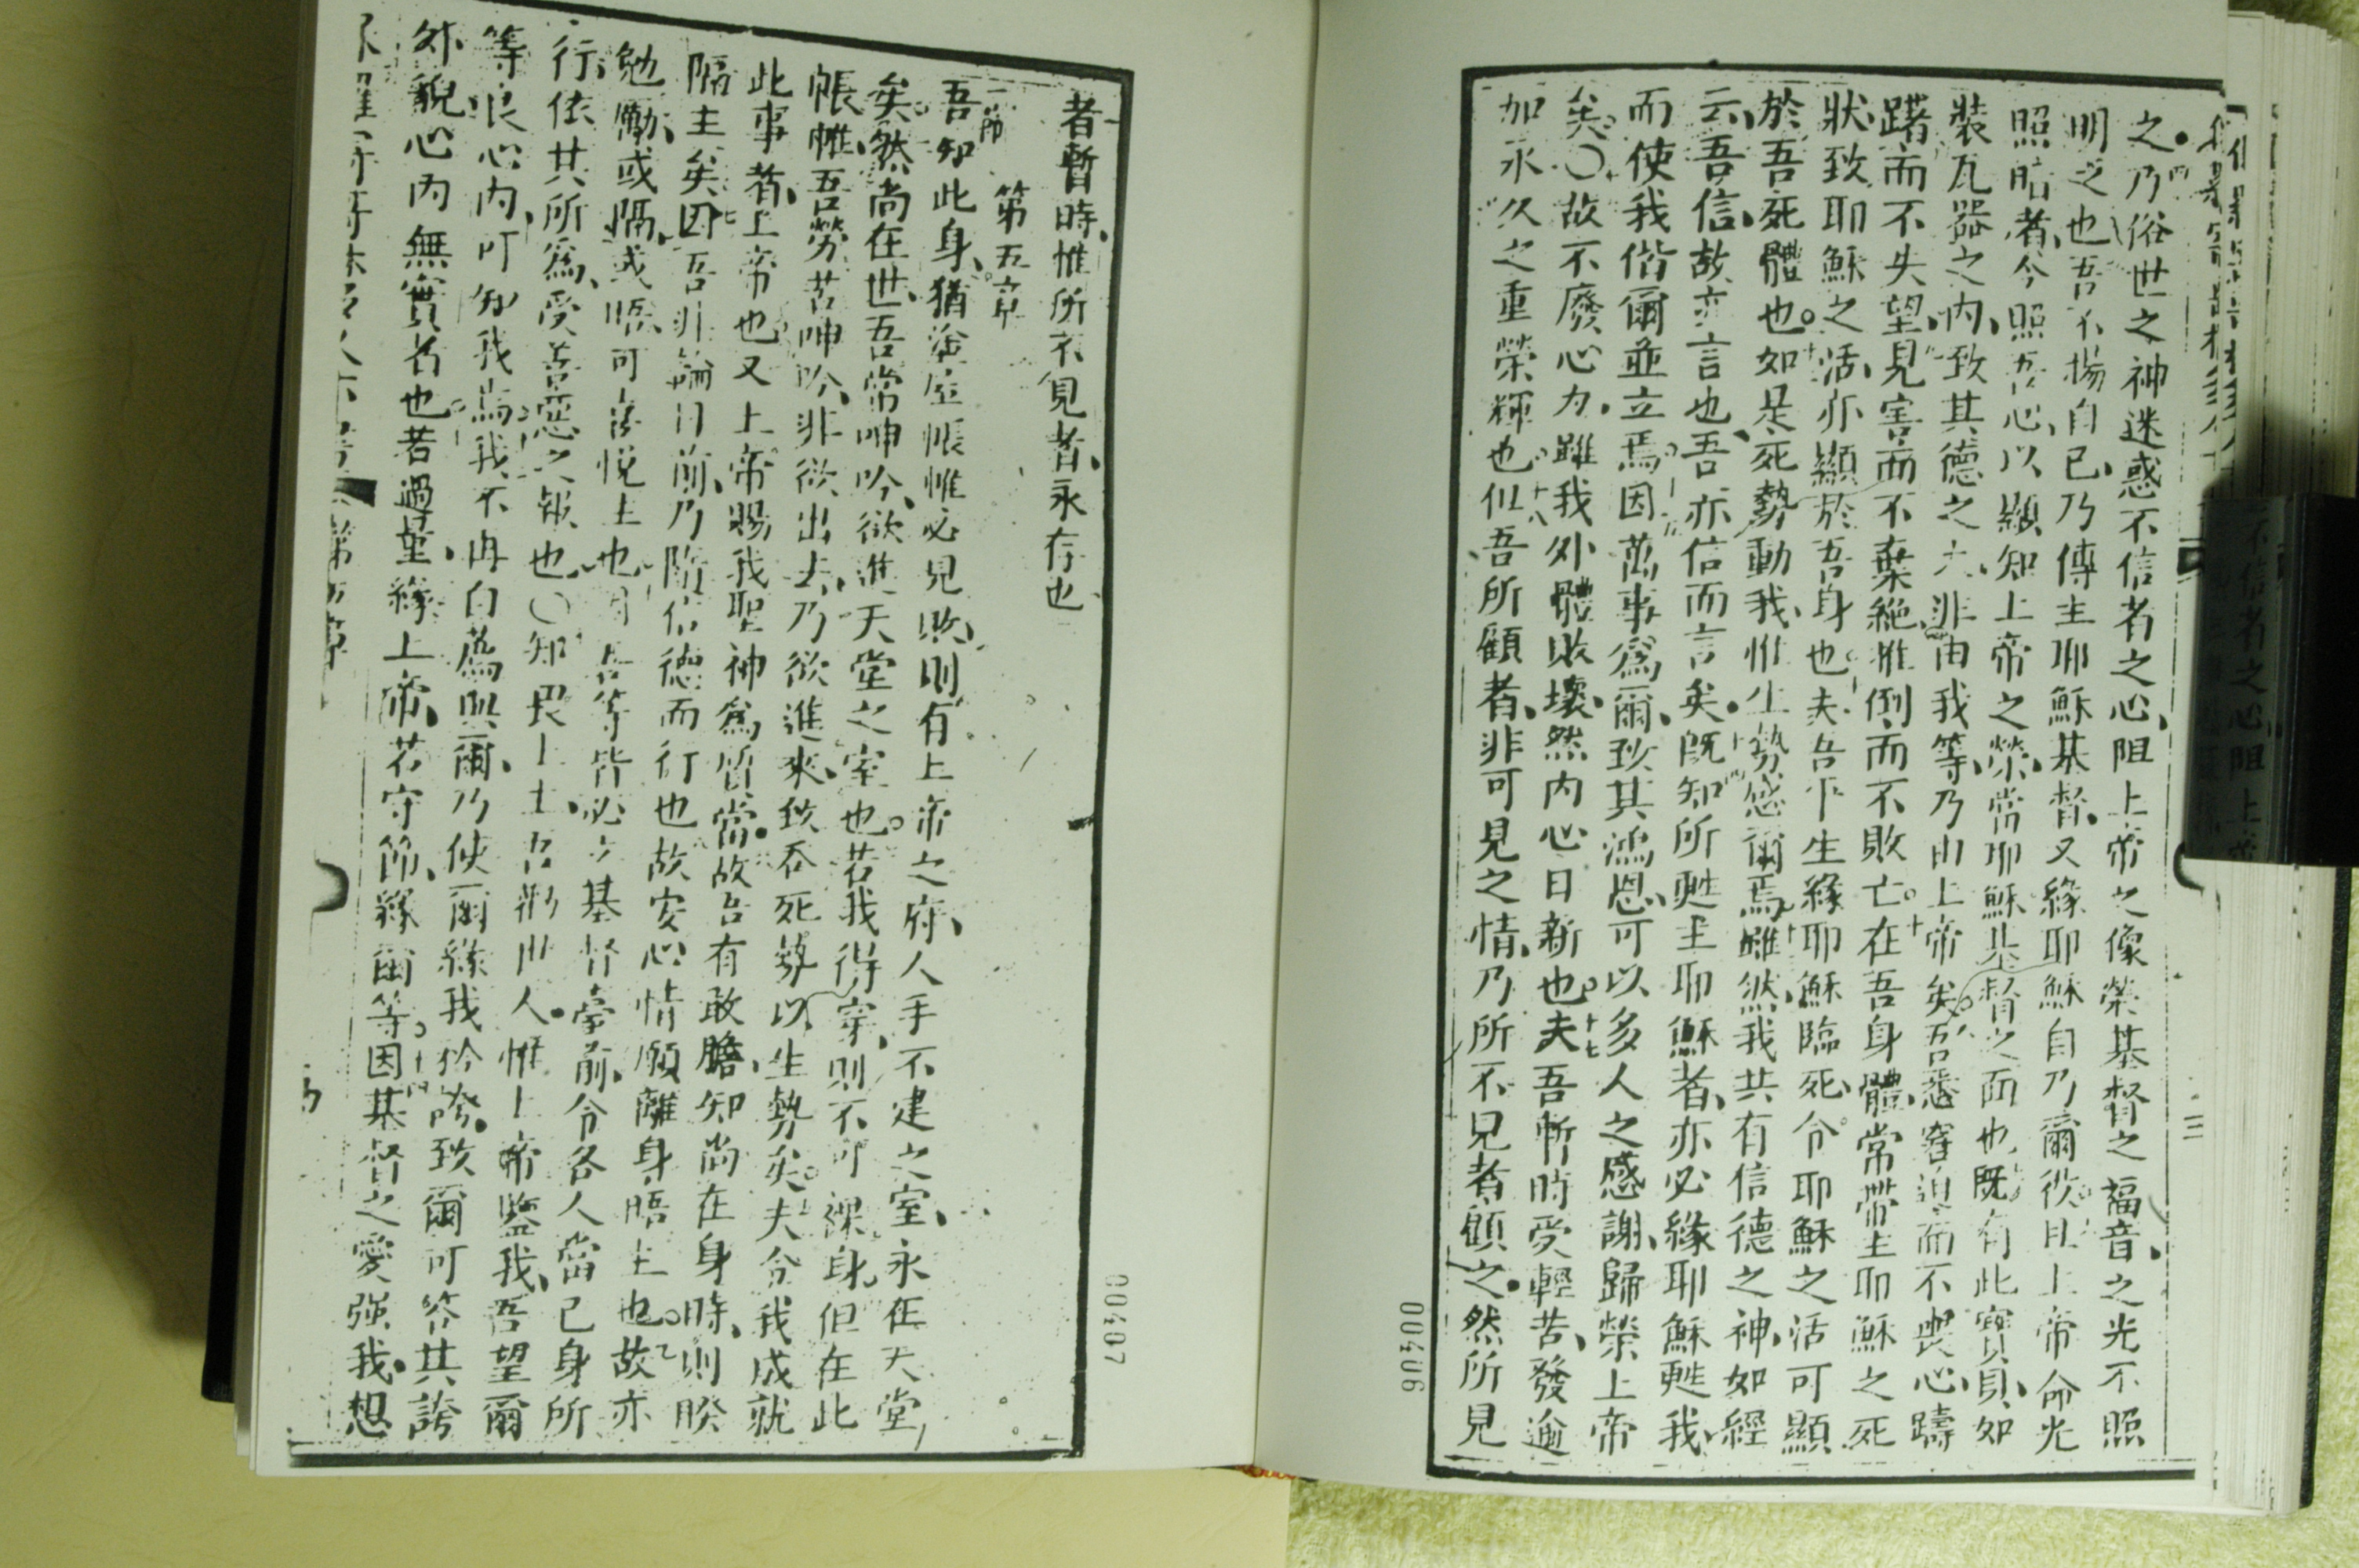 之乃俗世之神迷惑不信者之心、阻上帝之像榮基督之福音、之光不照
明之也吾不揚自己、乃傳主耶穌基督、又緣耶穌自乃爾役且上帝命光
照暗者、今照吾心、以顯知上帝之榮、當耶穌基督之面也既有此寶貝、如
裝瓦器之內、致其德之大、非由我等、乃由上帝矣吾悉窘迫而不喪心、躊
躇而不失望、見害而不棄絕推倒、而不敗亡。在吾身體、常帶主耶穌之死
狀、致耶穌之活、亦顯於吾身也夫吾平生緣耶穌臨死、令耶穌之活可顯
於吾死體也。如是死勢動我、惟生勢感爾焉、雖然我共有信德之神、如經
云、吾信、故亦言也、吾亦信而言矣。既知所甦主耶穌者、亦必緣耶穌甦我
而使我偕爾並立焉。因萬事爲爾、致其鴻恩、可以多人之感謝、歸榮上帝
矣〇故不廢心力、雖我外體敗壞、然內心日新也。夫吾暫時受輕苦、發逾
加永久之重榮輝也似吾所顧者、非可見之情、乃所不見者、顧之。然所見
00406
者暫時、惟所不見者、永存也
第五章
一節
吾知此身、猶塗屋帳帷必見敗、則有上帝之府、人手不建之室、永在天堂
矣然尚在世、吾常呻吟、欲進天堂之室也。若我得穿、則不可裸身、但在此
帳帷、吾勞苦呻吟、非欲出去、乃欲進來、致吞死勢、以生勢矣。夫令我成就
此事者、上帝也又上帝賜我聖神爲質當。故吾有敢膽、知尚在身時、則睽
隔主矣因吾非論目前、乃隨信德而行也故安心情願離身、晤主也。故亦
勉勵、或隔、或晤、可喜悅主也因吾等皆必立基督當前、令各人當已身所
行、依其所爲、受善惡之報也、〇知畏上主、吾勸世人。惟上帝鑒我、吾望爾
等良心內、可知我焉我不再自薦與爾、乃使爾緣我矜誇、致爾可答其誇
外貌心內無實者也若過望、緣上帝、若守節、緣爾等。因基督之愛強我、想
00407